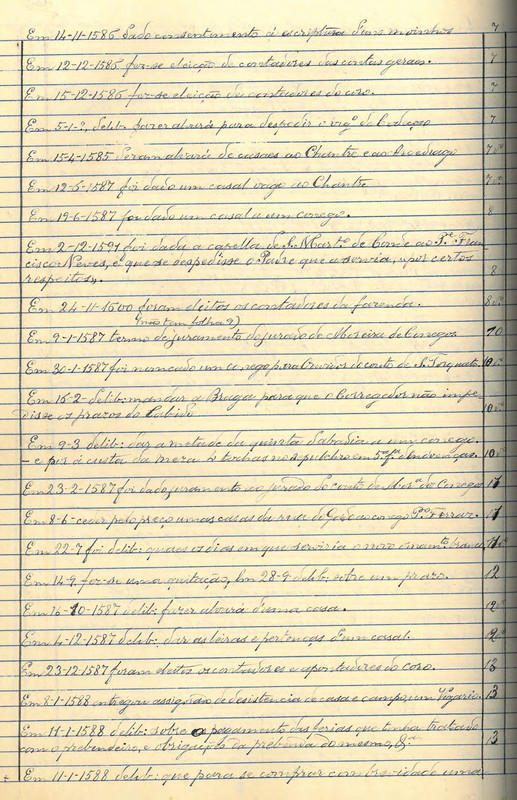 Em 14-11-1586 dado consentimento á escriptura d'uns moinhos 7
Em 12-12-1586 fez-se eleição de contadores das contas geraes. 7
Em 15-12-1586 fez-se eleição de contadores do coro. 7
Em 5-1-?, delib. fazer alvará para despedir o vigº de 7
Em 15-4-1585 deram alvará de casaes ao Chantre e ao Arcediago 7 vº
Em 12-5-1587 foi dado um casal vago ao Chantre 7 vº
Em 19-6-1587 foi dado um casal a um conego. 8
Em 2-12-1591 foi dada a capella de S. Martº de Conde ao Pe. Fran-
cisco Neves, e que se despedisse o Padre que a servia, "por certos
respeitos". 8
Em 24-11-1500 foram eleitos os contadores da fazenda. 8 vº
(não tem folha 9)
Em 9-1-1587 termo de juramento do jurado de Moreira de Conegos 10
Em 30-1-1587 foi nomeado um conego para Ouvidor do couto de S. Torquato. 10 vº
Em 16-2- delib: mandar a Braga para que o Corregedor não impe-
disse os prazos do Cabido 10 vº
Em 9-3 delib: dar a metade da quinta da badia a um conego.
- e pôr á custa da meza 2 tochas no sepulchro em 5ª fª d'endoenças. 10 vº
Em 23-2-1587 foi dado juramento ao jurado do couto de Morª de Conegos 11
Em 8-6- ceder pelo preço umas casas da rua de ao conego Pº Ferraz. 11
Em 22-7 foi delib: quaes os dias em que serviria o novo 11 vº
Em 14-9. fez-se uma quitação, Em 28-9 delib. sobre um prazo. 12
Em 16-10-1587 delib: fazer alvará d'uma casa. 12 vº
Em 4-12-1587 delib: dar as leiras e pertenças d'um casal. 12 vº
Em 23-12-1587 foram eleitos os contadores e apontadores do coro. 13
Em 8-1-1588 entregou assignado de desistencia de casa e campo, um Vigario. 13
Em 11-1-1588 delib: sobre o pagamento das terias que tenha tratado
com o prebendeiro, e obrigações da prebenda do mesmo, &ª 13
+ Em 11-1-1588 delib: que para se comprar com brevidade uma